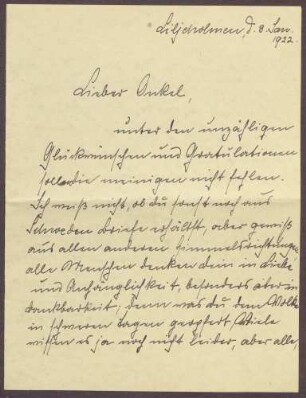 Liljeholmen, d. 8. Jan.
1922.
Lieber Onkel,
unter den unzähligen
Glückwünschen und Gratulationen
sollen die meinigen nicht fehlen.
Ich weiß nicht, ob du sonst noch aus
Schweden Briefe erhältst, aber gewiß
aus allen anderen Himmelsrichtungen
alle Menschen denken dein in Liebe
und Anhänglichkeit, besonders aber in
Dankbarkeit, denn was du dem Volke
in schweren Tagen geopfert, Viele
wissen es ja noch nicht leider, aber alle,